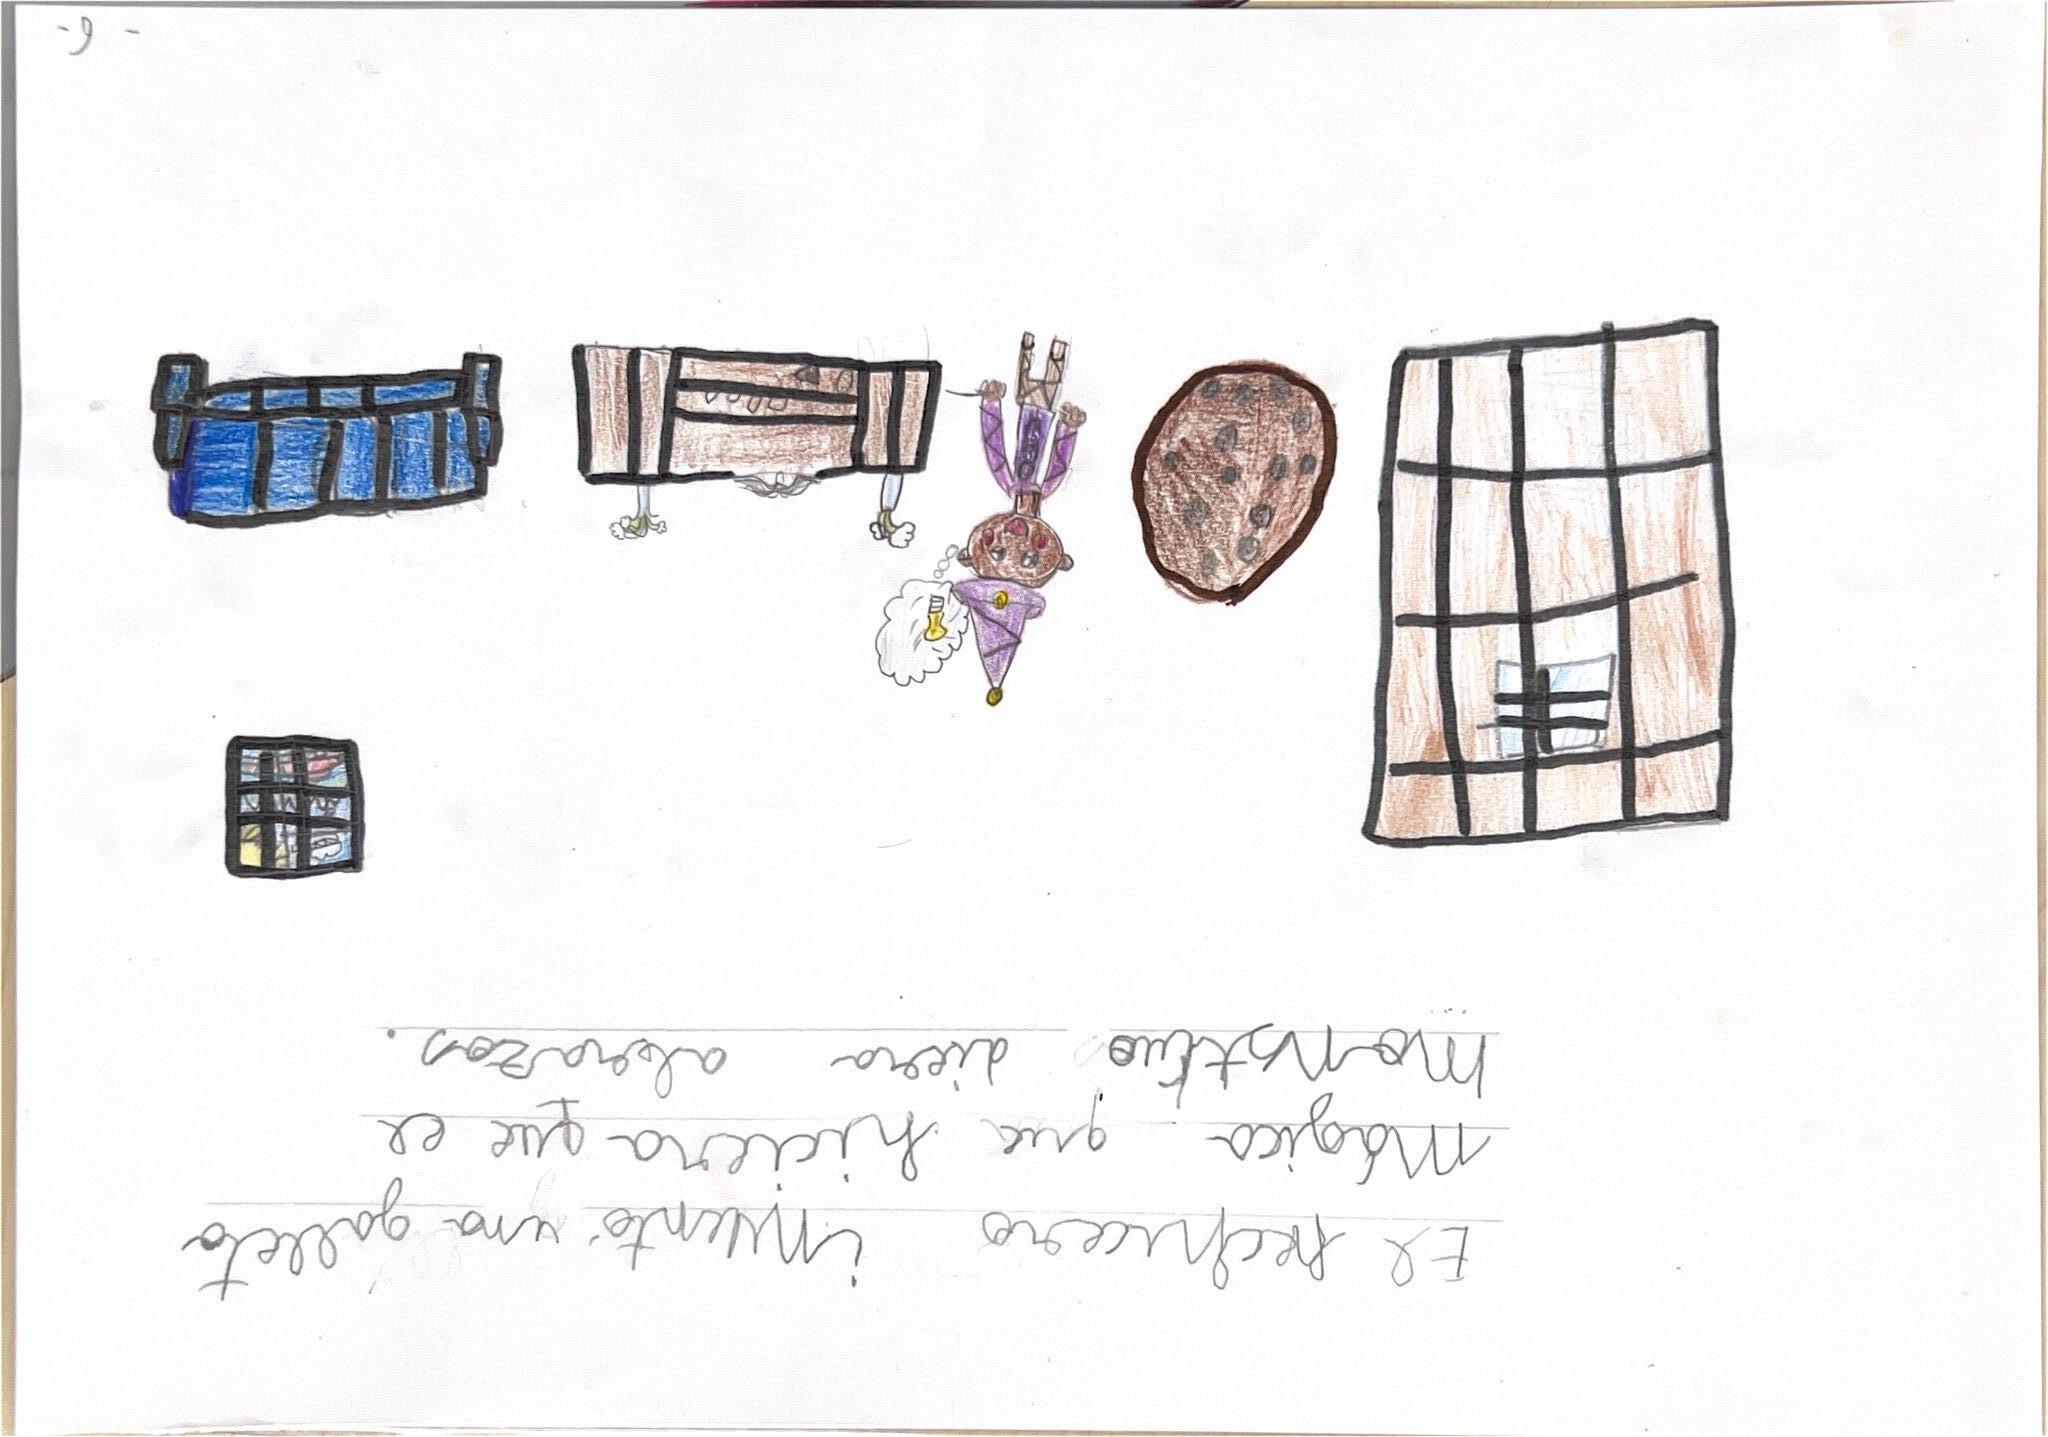 El hechicero inventó una galleta
mágica que hiciera que el
monstruo diera abrazos.
-6-